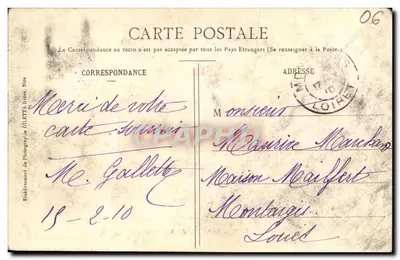 06
CARTE POSTALE
La Correspondance au recto n'est pas acceptée par tous les Pays Etrangers (Se renseigner à la Poste)
CORRESPONDANCE
ADRESSE
LOIRET
Merci de votre
carte souvenir
M. Galletto
15-2-10
Monsieur
Maurice Marchand
Maison Maiffert
Montargis
Loiret
Etablissement de Photographie GILETTA frères, Nice